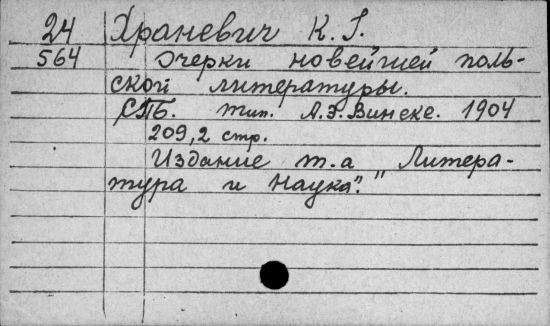 24 Храневич К. Г.
564 Очерки новейшей поль-
ской литературы.
СПБ. тип. А.Э.Винеке. 1904
209,2 стр.
Издание т.а "Литера-
тура и Наука".